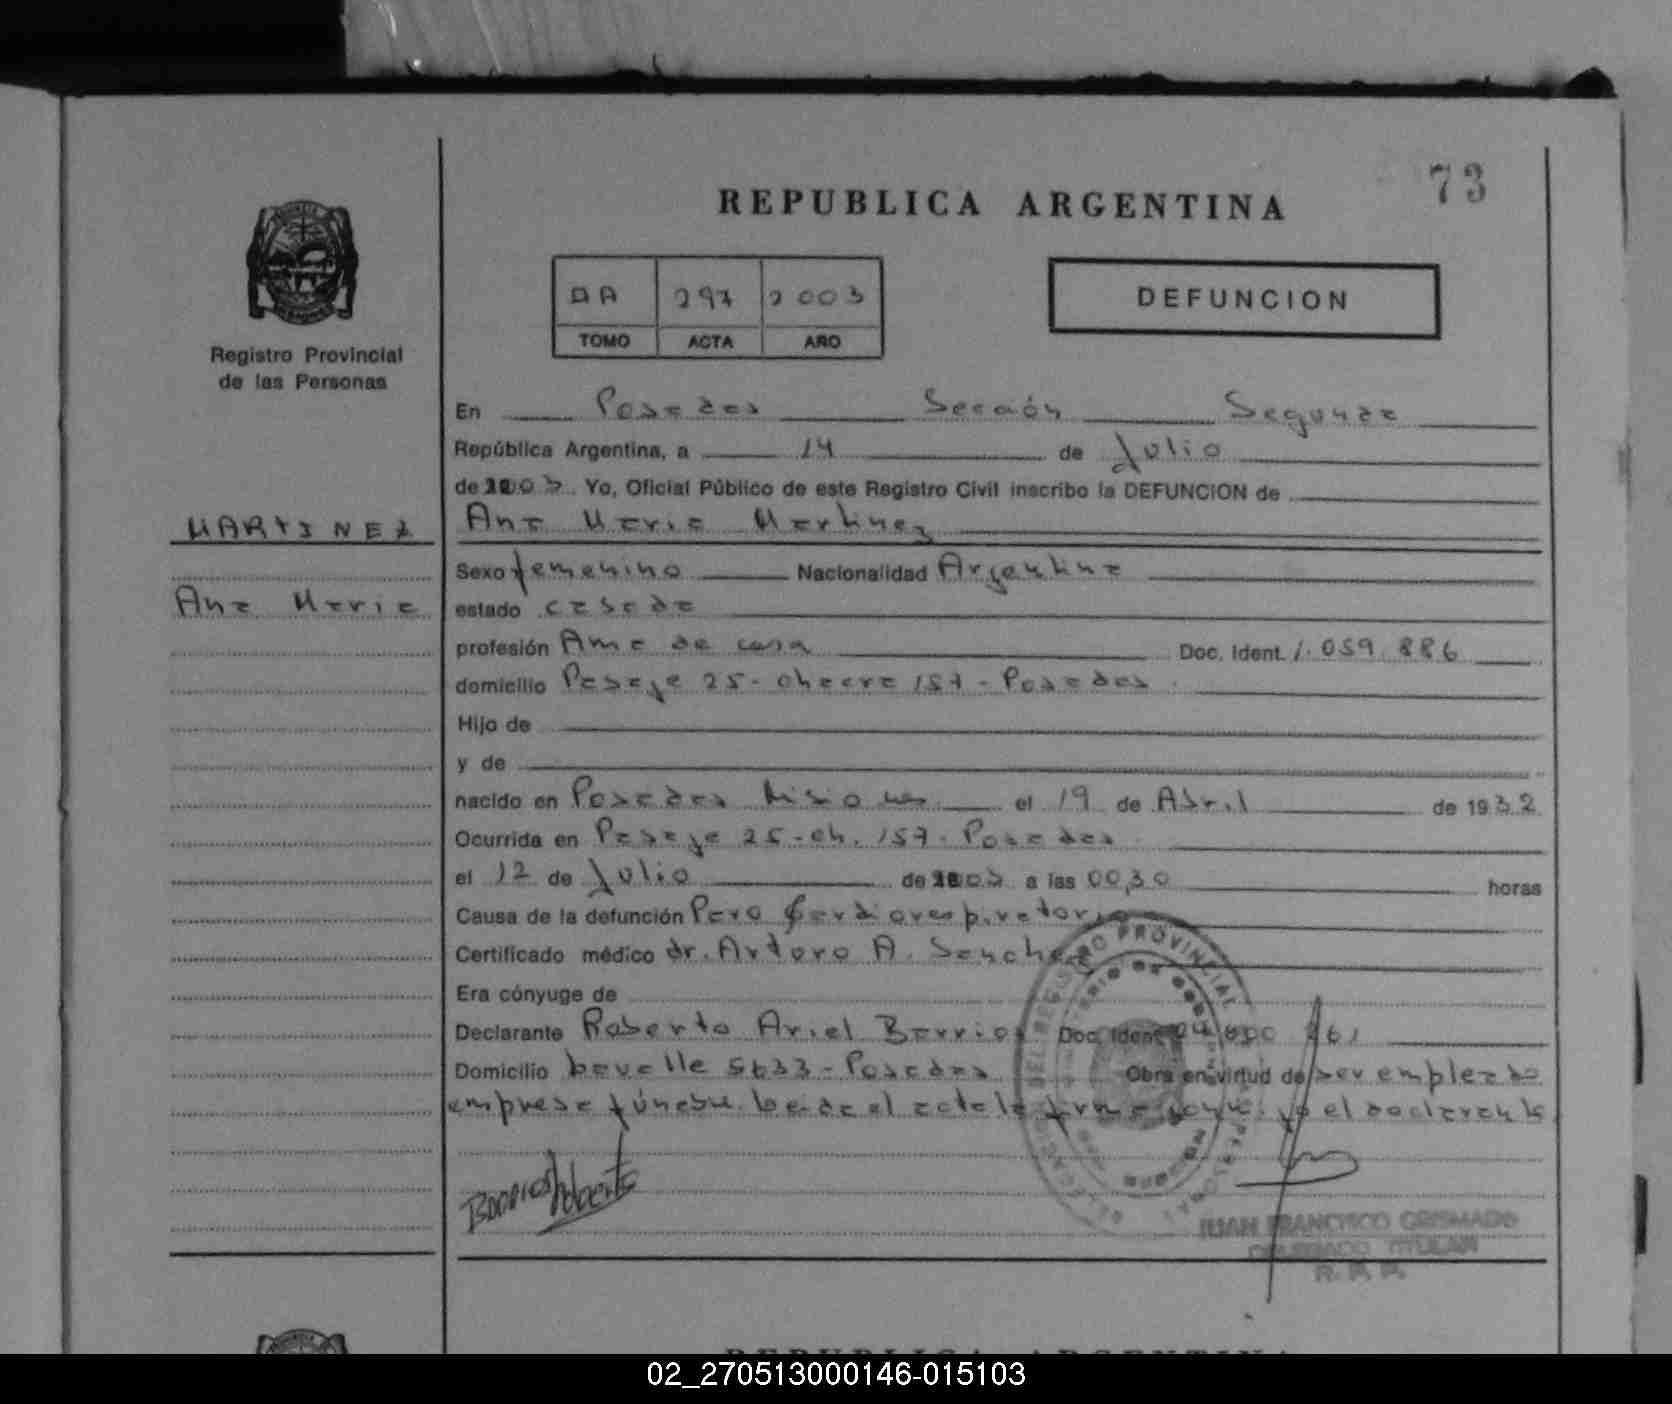 73
REPUBLICA ARGENTINA
AA 297 2003
TOMO ACTA AÑO
DEFUNCION
Registro Provincial
de las Personas
MARTINEZ
Ana Maria
En Posadas Sección Segunda
República Argentina, a 14 de Julio
de 2003. Yo, Oficial Público de este Registro Civil inscribo la DEFUNCION de
Ana Maria Martinez
Sexo femenino Nacionalidad Argentina
estado casada
profesión Ama de casa Doc. Ident. 1.059.886
domicilio Pasaje 25 - chacra 157 - Posadas
Hijo de
y de
nacido en Posadas Misiones el 19 de Abril de 1932
Ocurrida en Pasaje 25 - ch. 157 - Posadas
el 12 de Julio de 2003 a las 00,30 horas
Causa de la defunción Paro Cardiorespiratorio
Certificado médico dr. Arturo A. Sanchez
Era cónyuge de
Declarante Roberto Ariel Barrios Doc. Ident. 261
Domicilio 5633 - Posadas Obra en virtud de ser empleado
empresa fúnebre. Leida el acta la firma el declarante
Barrios Roberto
REGISTRO PROVINCIAL
JUAN FRANCISCO GRISMADO
DELEGADO TITULAR
R. P. P.
REPUBLICA ARGENTINA
02_270513000146-015103